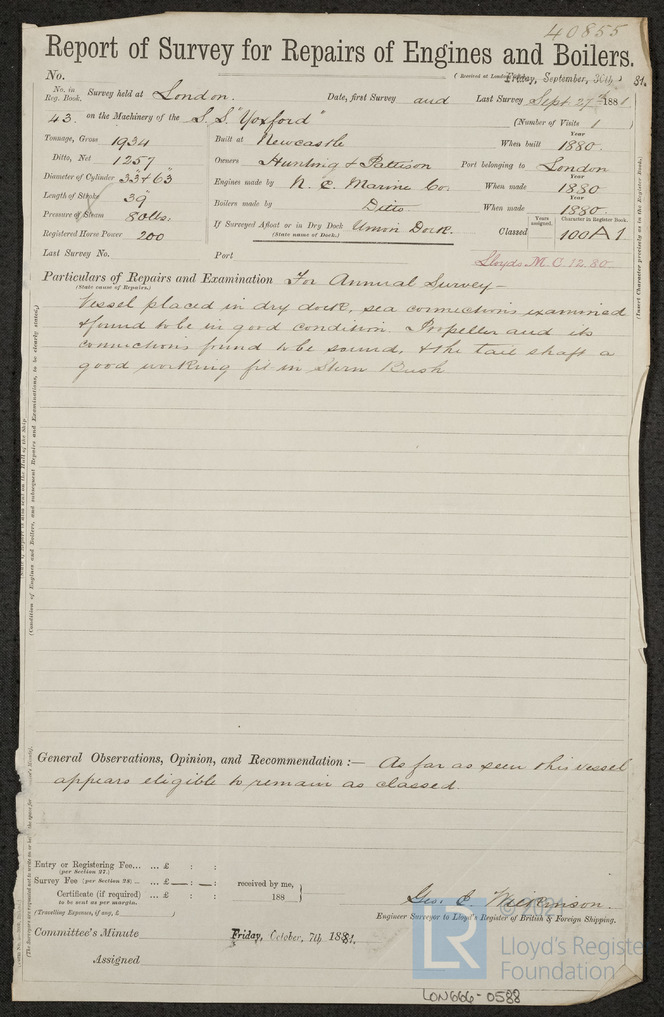 40855
Report of Survey for Repairs of Engines and Boilers.
No. (Received at London Friday, September, 30th 81.
No. in Reg. Book. Survey held at London. Date, first Survey and Last Survey Sept. 27th 1881
43. on the Machinery of the S.S. "Yoxford" (Number of Visits 1 )
Tonnage, Gross 1934 Built at Newcastle When built Year 1880.
Ditto, Net 1257 Owners Hunting & Pattison Port belonging to London
Diameter of Cylinder 33" + 63" Engines made by N. E. Marine Co. When made Year 1880
Length of Stroke 39" Boilers made by Ditto When made Year 1880.
Pressure of Steam 80 lbs. If Surveyed Afloat or in Dry Dock Union Dock. Classed Years assigned. Character in Register Book. 100A1
(State name of Dock.)
Registered Horse Power 200
Last Survey No. Port Lloyds M.C. 12.80
Particulars of Repairs and Examination For Annual Survey-
(State cause of Repairs.)
Vessel placed in dry dock, sea connections examined
& found to be in good condition. Propeller and its
connections found to be sound, & the tail shaft a
good working fit in Stern Bush
General Observations, Opinion, and Recommendation :— As far as seen this vessel
appears eligible to remain as classed.
Entry or Registering Fee... ... £ : :
(per Section 27.)
Survey Fee (per Section 28) ... ... £ — : — : received by me,
Certificate (if required) ... £ : : 188
to be sent as per margin.
(Travelling Expenses, if any, £ )
Geo. C. Wilkinson.
Engineer Surveyor to Lloyd's Register of British & Foreign Shipping.
Committee's Minute Friday, October, 7th 1881.
Assigned
(Insert Character precisely as in the Register Book.)
(Condition of Engines and Boilers, and subsequent Repairs and Examinations, to be clearly stated.)
LR
© 2021
Lloyd's Register
Foundation
LON666-0588